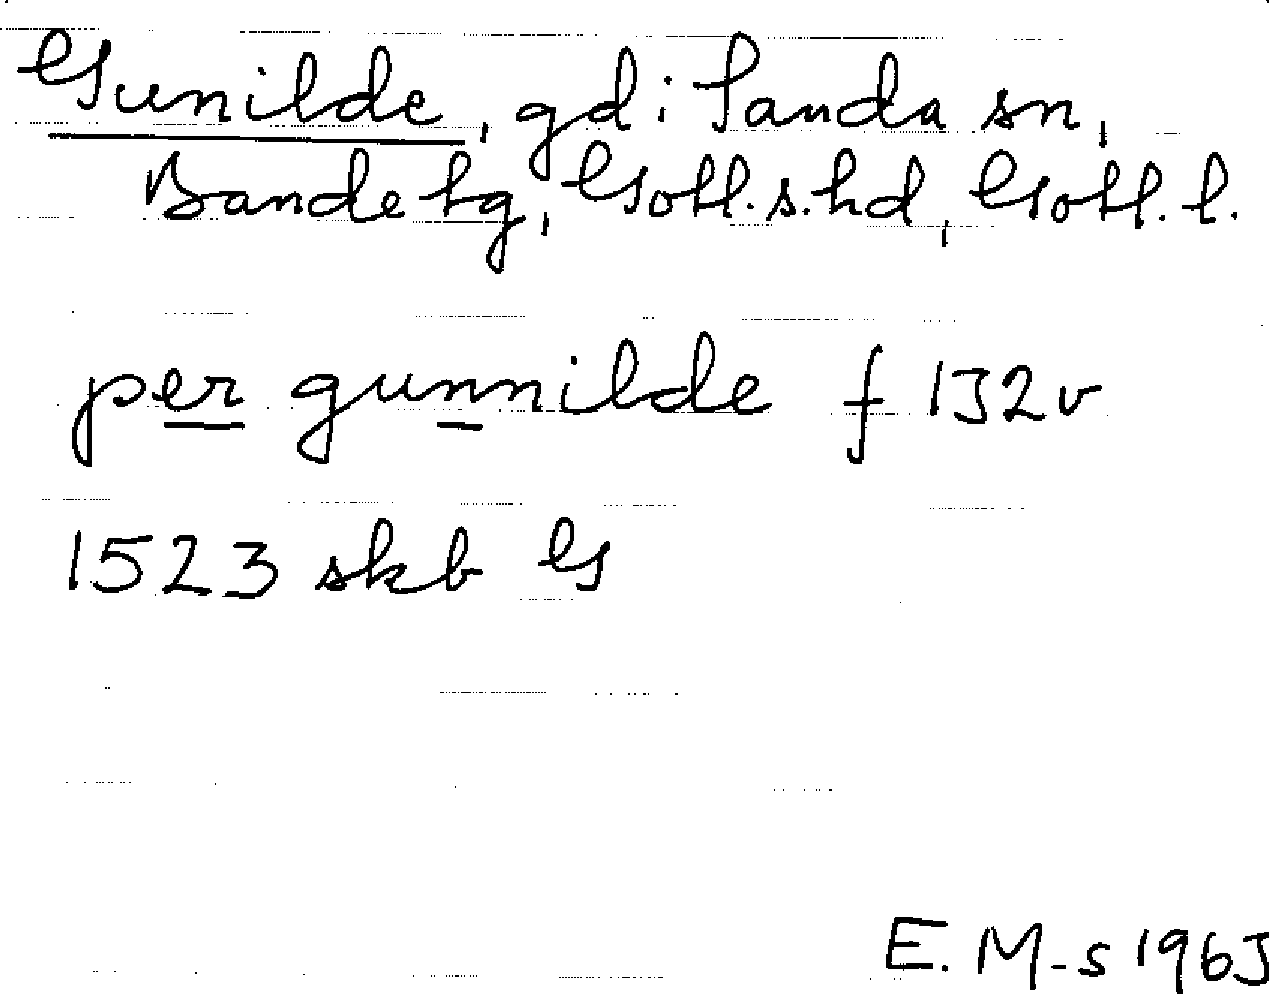 Gunilde, gd i Sanda sn,
Bandetg, Gotl.s.hd, Gotl.l.
per gunnilde f 132v
1523 skb G
E. M-s 1963